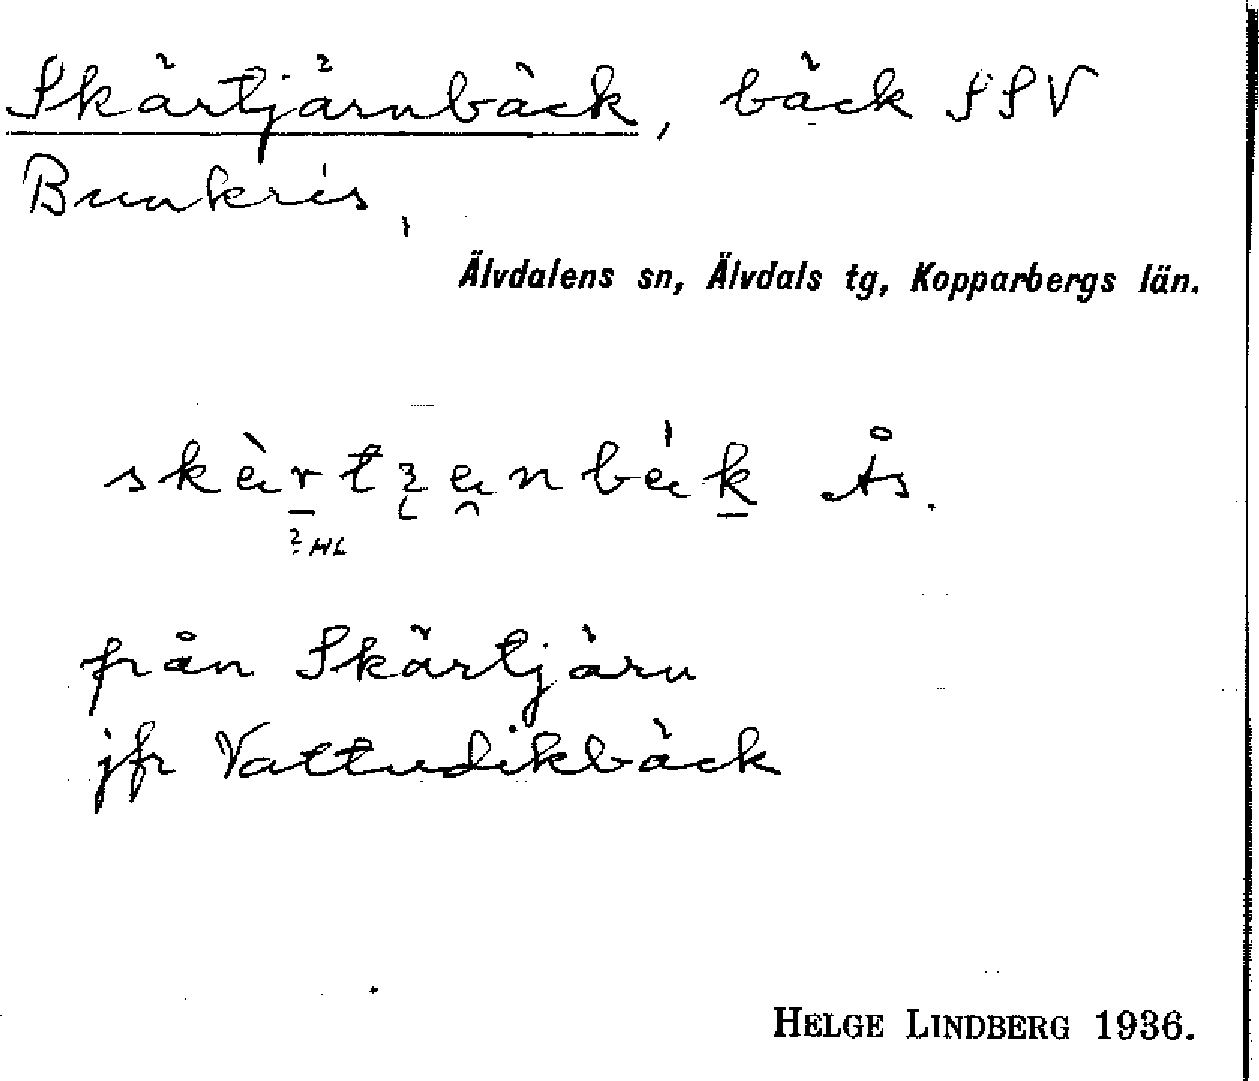 Skärtjärnbäck, bäck SSV
Bunkris,
Älvdalens sn, Älvdals tg, Kopparbergs län.
Ås.
?HL
från Skärtjärn
jfr Vattudikbäck
HELGE LINDBERG 1936.